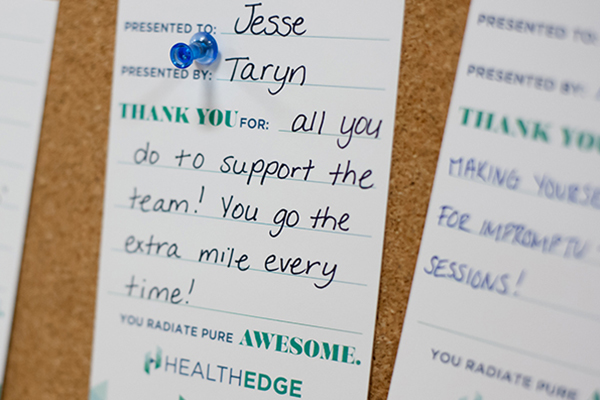 PRESENTED TO: Jesse
PRESENTED BY: Taryn
THANK YOU FOR: all you
do to support the
team! You go the
extra mile every
time!
YOU RADIATE PURE AWESOME.
HEALTHEDGE
PRESENTED TO:
PRESENTED BY:
THANK YOU
MAKING
FOR IMPROMPTU
SESSIONS!
YOU RADIATE PURE